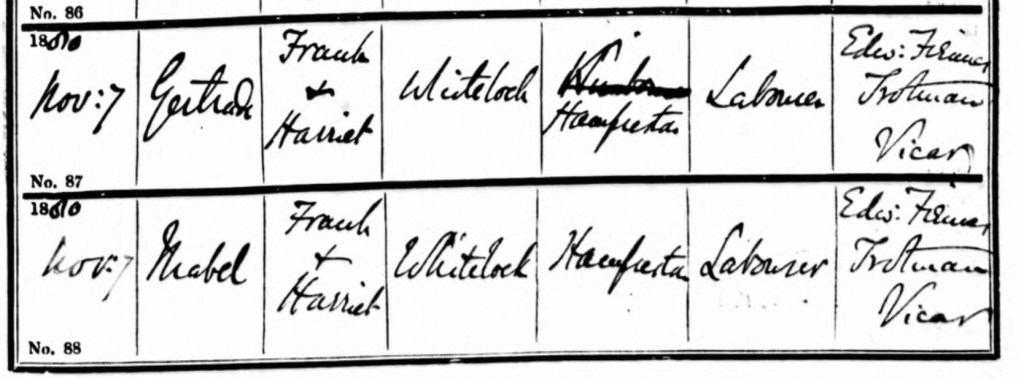 No. 86
1880
Nov: 7
Gertrude
Frank
+
Harriet
Whitelock
Wimborne
Hampreston
Labourer
Edw: Fiennes
Trotman
Vicar
No. 87
1880
Nov: 7
Mabel
Frank
+
Harriet
Whitelock
Hampreston
Labourer
Edw: Fiennes
Trotman
Vicar
No. 88